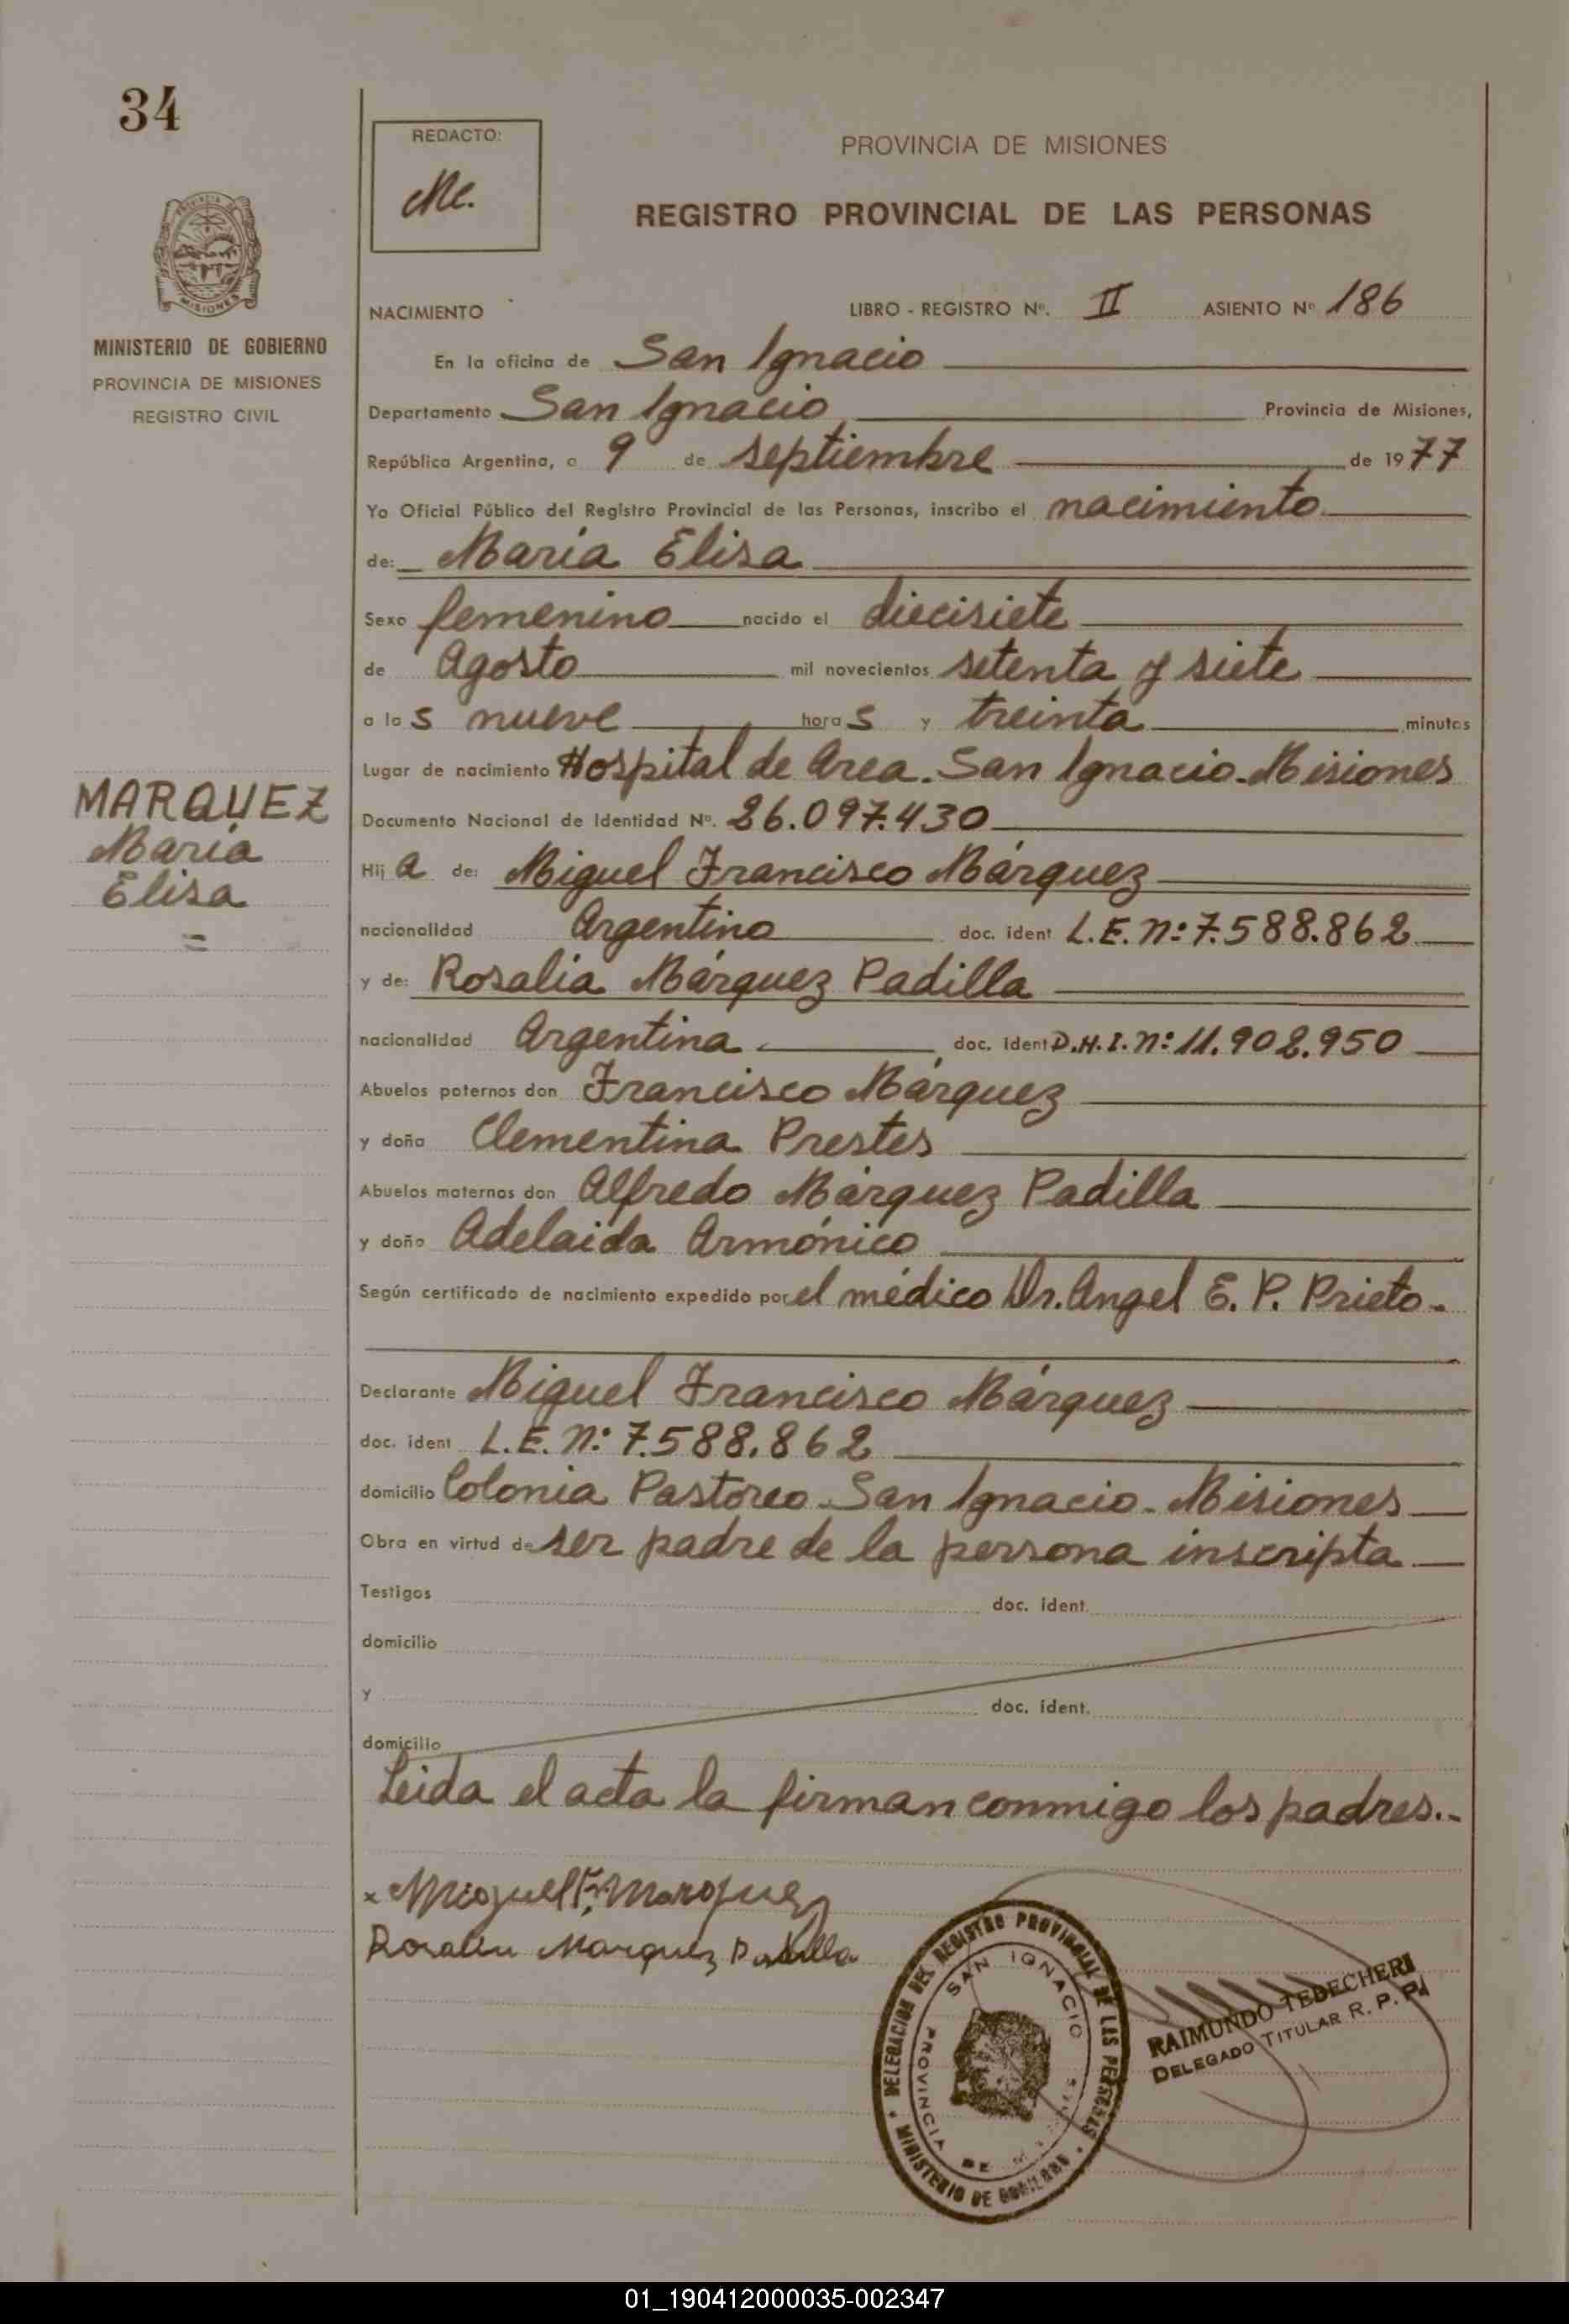 34
REDACTO:
Me.
PROVINCIA DE MISIONES
REGISTRO PROVINCIAL DE LAS PERSONAS
PROVINCIA DE
MISIONES
MINISTERIO DE GOBIERNO
PROVINCIA DE MISIONES
REGISTRO CIVIL
NACIMIENTO LIBRO - REGISTRO Nº. II ASIENTO Nº 186
En la oficina de San Ignacio
Departamento San Ignacio Provincia de Misiones,
República Argentina, a 9 de septiembre de 1977
Yo Oficial Público del Registro Provincial de las Personas, inscribo el nacimiento
de: María Elisa
Sexo femenino nacido el diecisiete
de Agosto mil novecientos setenta y siete
a las nueve horas y treinta minutos
Lugar de nacimiento Hospital de Area. San Ignacio. Misiones
MARQUEZ
María
Elisa
=
Documento Nacional de Identidad Nº. 26.097.430
Hija de: Miguel Francisco Márquez
nacionalidad Argentino doc. ident L.E. n: 7.588.862
y de: Rosalía Márquez Padilla
nacionalidad Argentina doc. ident D.N.I. n: 11.902.950
Abuelos paternos don Francisco Márquez
y doña Clementina Prestes
Abuelos maternos don Alfredo Márquez Padilla
y doña Adelaida Armónico
Según certificado de nacimiento expedido por el médico Dr. Angel E. P. Prieto.
Declarante Miguel Francisco Márquez
doc. ident L.E. n: 7.588.862
domicilio Colonia Pastoreo. San Ignacio. Misiones
Obra en virtud de ser padre de la persona inscripta
Testigos doc. ident.
domicilio
y doc. ident.
domicilio
Leida el acta la firman conmigo los padres.-
x Miguel F. Marquez
Rosalia Marquez Padilla
DELEGACION DEL REGISTRO PROVINCIAL DE LAS PERSONAS
MINISTERIO DE GOBIERNO
SAN IGNACIO
PROVINCIA DE MISIONES
RAIMUNDO TEDECHERI
DELEGADO TITULAR R. P. P.
01_190412000035-002347